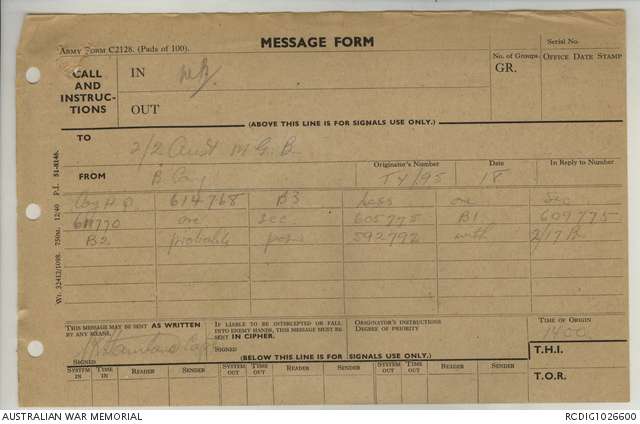 ARMY FORM C2128. (Pads of 100).
MESSAGE FORM
Serial No.
CALL AND INSTRUC-TIONS
IN
OUT
No. of Groups
GR.
OFFICE DATE STAMP
(ABOVE THIS LINE IS FOR SIGNALS USE ONLY.)
TO
2/2 Aust M G Bn
FROM
B Coy
Originator's Number
T4/95
Date
18
In Reply to Number
Coy H.Q. 614768 B3 less one Sec
611770 one sec 605775 B1 609775
B2 probable posn 592792 with 2/17 Bn
Wt. 32412/1098. 750m. 12/40 P.I. 51-8146.
THIS MESSAGE MAY BE SENT AS WRITTEN
BY ANY MEANS.
SIGNED
IF LIABLE TO BE INTERCEPTED OR FALL
INTO ENEMY HANDS, THIS MESSAGE MUST BE
SENT IN CIPHER.
SIGNED
ORIGINATOR'S INSTRUCTIONS
DEGREE OF PRIORITY
TIME OF ORIGIN
1400
(BELOW THIS LINE IS FOR SIGNALS USE ONLY.)
T.H.I.
SYSTEM IN TIME IN READER SENDER SYSTEM OUT TIME OUT READER SENDER SYSTEM OUT TIME OUT READER SENDER
T.O.R.
AUSTRALIAN WAR MEMORIAL
RCDIG1026600